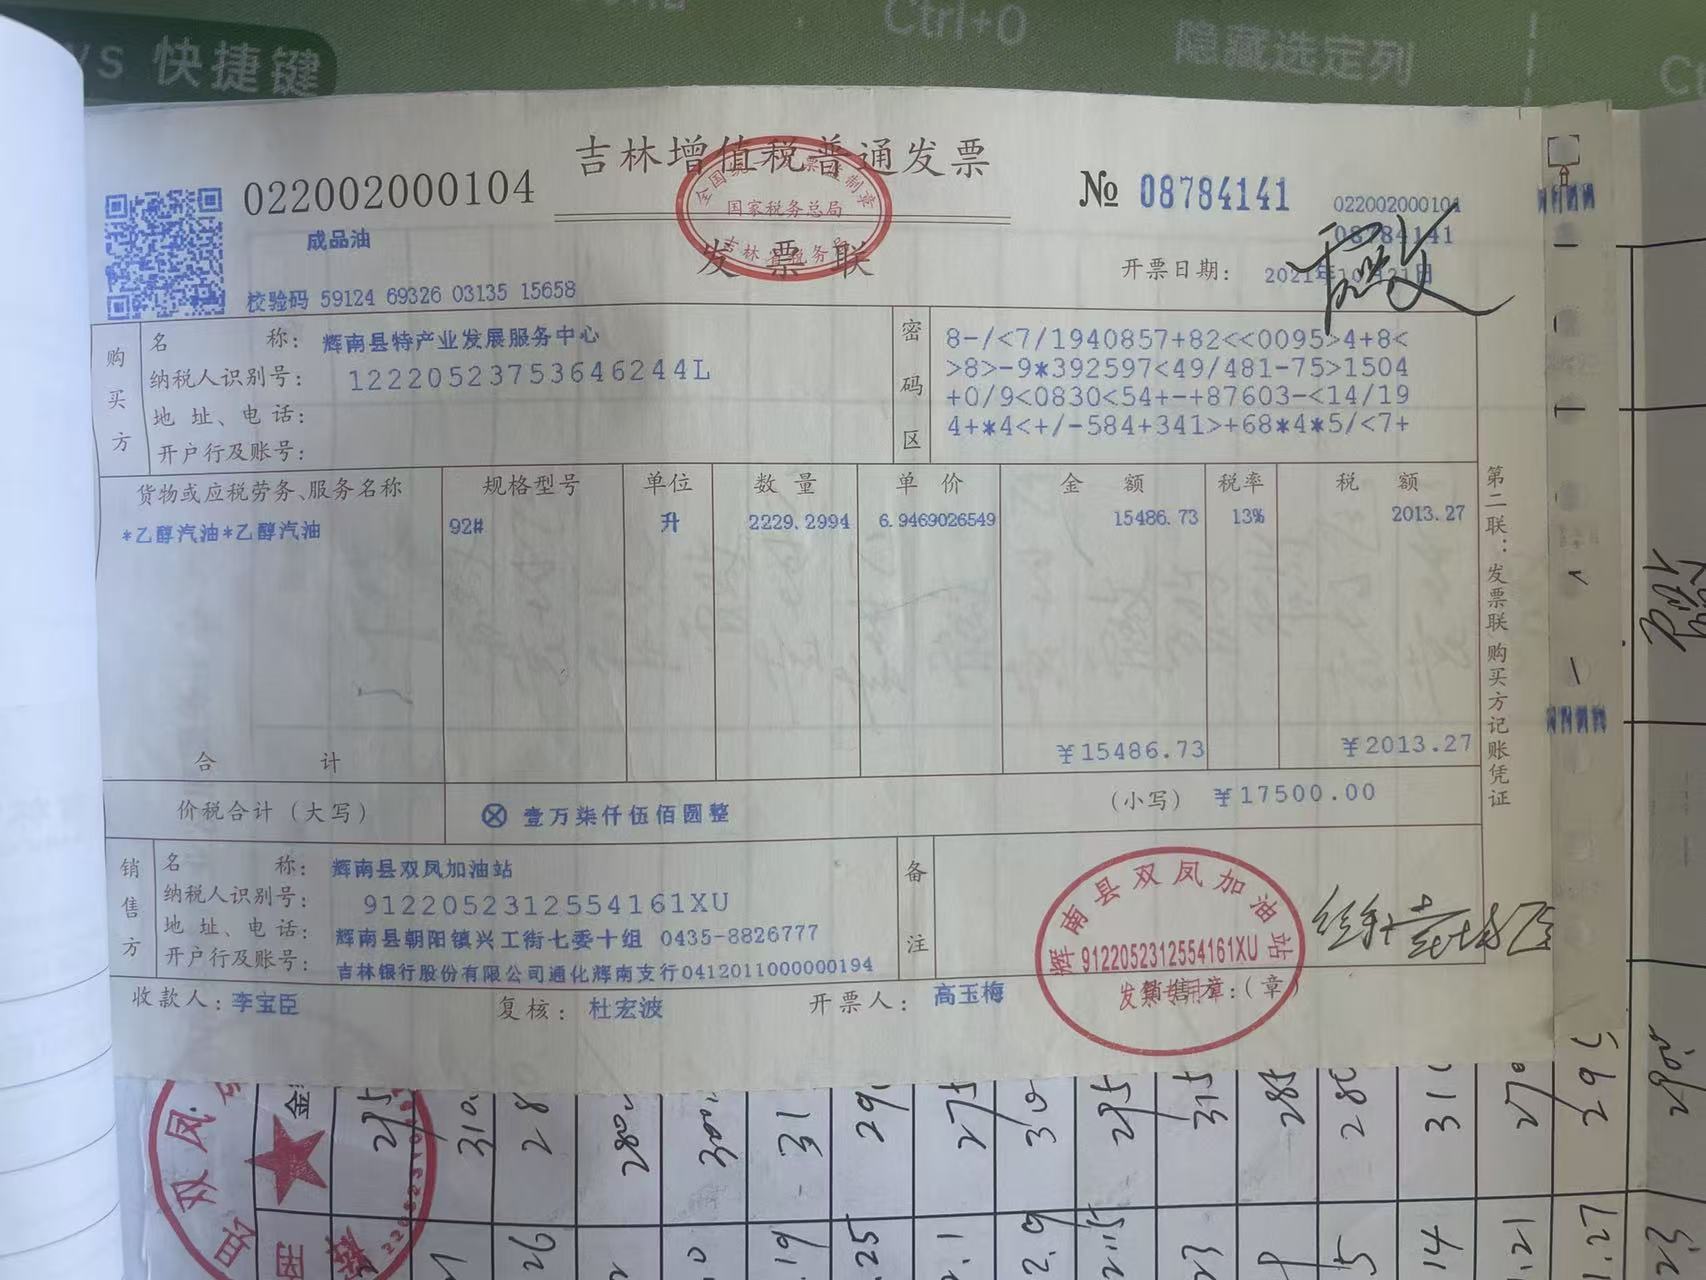 快捷键
Ctrl+O
隐藏选定列
吉林增值税普通发票
发票联
022002000104
№ 08784141
022002000104
08784141
成品油
校验码 59124 69326 03135 15658
开票日期： 2021年10月21日
全国统一发票监制章
国家税务总局
吉林省税务局
购买方
名 称： 辉南县特产业发展服务中心
纳税人识别号： 12220523753646244L
地 址、电 话：
开户行及账号：
密码区
8-/<7/1940857+82<<0095>4+8<
>8>-9*392597<49/481-75>1504
+0/9<0830<54+-+87603-<14/19
4+*4<+/-584+341>+68*4*5/<7+
货物或应税劳务、服务名称 规格型号 单位 数 量 单 价 金 额 税率 税 额
*乙醇汽油*乙醇汽油 92# 升 2229.2994 6.9469026549 15486.73 13% 2013.27
合 计 ￥15486.73 ￥2013.27
价税合计（大写） ⊗ 壹万柒仟伍佰圆整 （小写） ￥17500.00
销售方
名 称： 辉南县双凤加油站
纳税人识别号： 9122052312554161XU
地 址、电 话： 辉南县朝阳镇兴工街七委十组 0435-8826777
开户行及账号： 吉林银行股份有限公司通化辉南支行0412011000000194
备注
收款人： 李宝臣 复核： 杜宏波 开票人： 高玉梅 销售方：（章）
辉南县双凤加油站
9122052312554161XU
发票专用章
第二联：发票联 购买方记账凭证
双凤